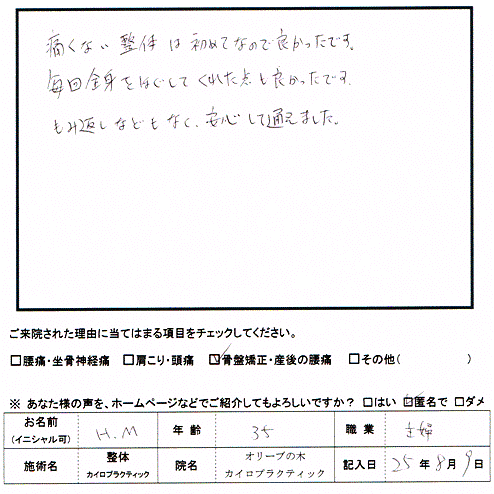 痛くない整体は初めてなので良かったです。
毎回全身をほぐしてくれた点も良かったです。
もみ返しなどもなく、安心して通えました。
ご来院された理由に当てはまる項目をチェックしてください。
□腰痛・坐骨神経痛 □肩こり・頭痛 ☑骨盤矯正・産後の腰痛 □その他( )
※ あなた様の声を、ホームページなどでご紹介してもよろしいですか? □はい ☑匿名で □ダメ
お名前 (イニシャル可) H.M 年 齢 35 職 業 主婦
施術名 整体 カイロプラクティック 院名 オリーブの木 カイロプラクティック 記入日 25年8月9日